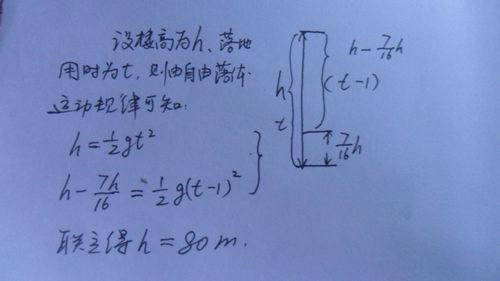 设楼高为h、落地
用时为t,则由自由落体
运动规律可知:
h=½gt²
h-7h/16=½g(t-1)²
联立得h=80m.
h-7/16h
(t-1)
h
t
7/16h